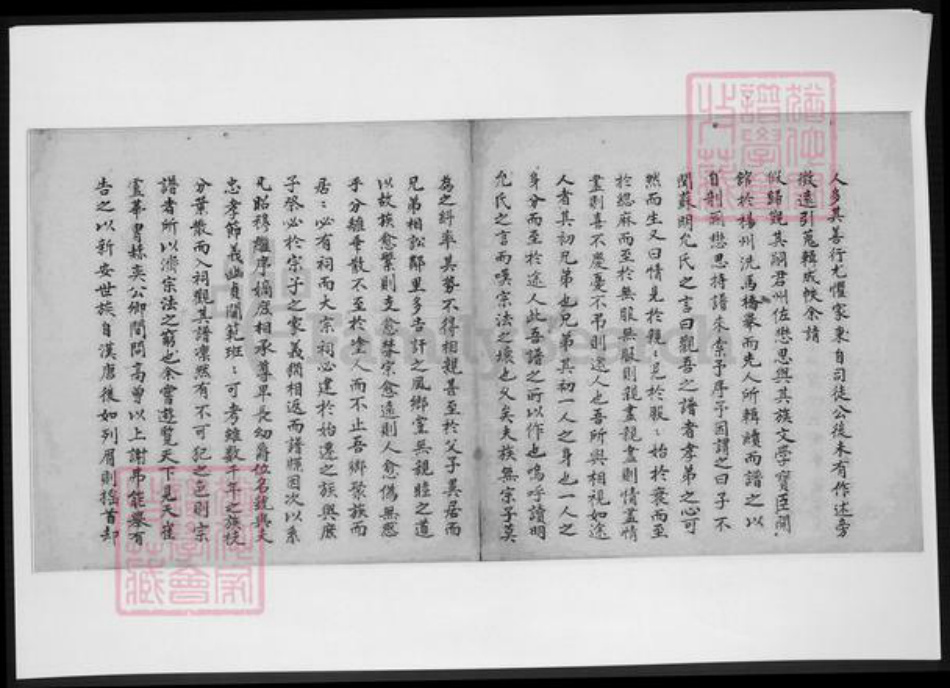 人多其善行尤懼家東自司徒公後未有作述旁
徵遠引蒐輯成帙余請
假歸覲其嗣君州佐懋思與其族文學寶臣聞
錦於楊州洗馬橋舉而先人所輯牘而譜之以
自剞劂懋思持譜來索予序予因謂之曰子不
聞蘇明允氏之言曰觀吾之譜者孝弟之心可
然而生又曰情見於親:見於服:始於衰而至
於緦麻而至於無服無服則親盡親盡則情盡情
盡則喜不慶憂不弔則途人也吾所與相視如途
人者其初兄弟也兄弟其初一人之身也一人之
身分而至於途人此吾譜之所以作也嗚呼讀明
允氏之言而嘆宗法之壞也久矣夫族無宗子莫
為之糾率其勢不得相親善至於父子異居而
兄弟相訟鄰里多告訐之風鄉黨無親睦之道
以故族愈繁則支愈棼宗愈遠則人愈偽無惑
乎分離乖散不至於塗人而不止吾鄉聚族而
居:必有祠而大宗祠必建於始遷之族與庶
子祭必於宗子之家義猶相返而譜牒因次以系
凡昭穆繼序嫡庶相承尊卑長幼爵位名號與夫
忠孝節義幽貞閫範班:可考雖數千年之族枝
分葉散而入祠觀其譜凜然有不可犯之色則宗
譜者所以濟宗法之窮也余嘗遊覽天下見夫崔
盧華胄赫奕公卿間問高曾以上謝弗能舉有
告之以新安世族自漢唐後如列眉則搖首却
FamilySearch